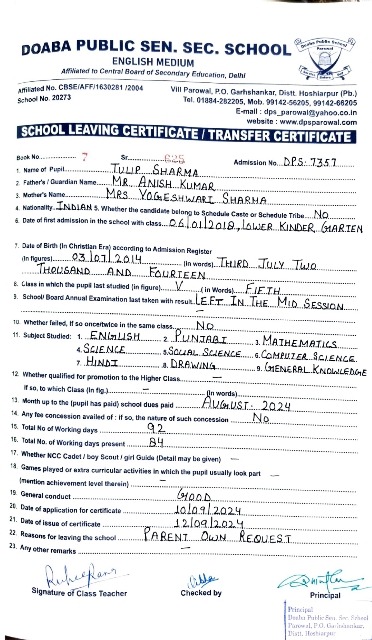 DOABA PUBLIC SEN. SEC. SCHOOL
ENGLISH MEDIUM
Affiliated to Central Board of Secondary Education, Delhi
Doaba Public School
Parowal
Affiliated No. CBSE/AFF/1630281 /2004
School No. 20273
Vill Parowal, P.O. Garhshankar, Distt. Hoshiarpur (Pb.)
Tel. 01884-282205, Mob. 99142-56205, 99142-66205
E-mail : dps_parowal@yahoo.co.in
website : www.dpsparowal.com
SCHOOL LEAVING CERTIFICATE / TRANSFER CERTIFICATE
Book No 7 Sr. 625 Admission No. DPS-7357
1. Name of Pupil TULIP SHARMA
2. Father's / Guardian Name MR ANISH KUMAR
3. Mother's Name MRS YOGESHWARI SHARMA
4. Nationality INDIAN 5. Whether the candidate belong to Schedule Caste or Schedule Tribe NO
6. Date of first admission in the school with class 06/01/2018, LOWER KINDER GARTEN
7. Date of Birth (In Christian Era) according to Admission Register
(In figures) 03/07/2014 (In words) THIRD JULY TWO
THOUSAND AND FOURTEEN
8. Class in which the pupil last studied (in figure) V (in Words) FIFTH
9. School Board Annual Examination last taken with result LEFT IN THE MID SESSION
10. Whether failed, if so once/twice in the same class NO
11. Subject Studied: 1. ENGLISH 2. PUNJABI 3. MATHEMATICS
4. SCIENCE 5. SOCIAL SCIENCE 6. COMPUTER SCIENCE
7. HINDI 8. DRAWING 9. GENERAL KNOWLEDGE
12. Whether qualified for promotion to the Higher Class —
If so, to which Class (In fig.) — (In words) —
13. Month up to the (pupil has paid) school dues paid AUGUST-2024
14. Any fee concession availed of : if so, the nature of such concession NO
15. Total No. of Working days 92
16. Total No. of Working days present 84
17. Whether NCC Cadet / boy Scout / girl Guide (Detail may be given) —
18. Games played or extra curricular activities in which the pupil usually look part —
(mention achievement level therein) —
19. General conduct GOOD
20. Date of application for certificate 10/09/2024
21. Date of issue of certificate 12/09/2024
22. Reasons for leaving the school PARENT OWN REQUEST
23. Any other remarks —
Signature of Class Teacher Checked by Principal
Principal
Doaba Public Sen. Sec. School
Parowal, P.O. Garhshankar,
Distt. Hoshiarpur